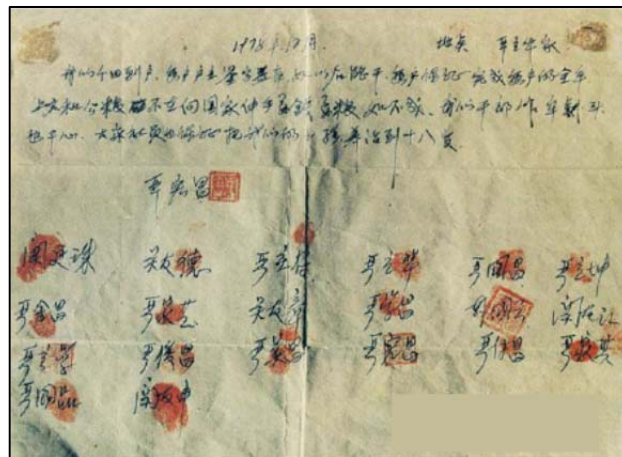 1978年12月. 地点 严立华家
我们分田到户, 每户户主签字盖章, 如以后能干, 每户保证完成每户的全年
上交和公粮 不在向国家伸手要钱要粮, 如不成, 我们干部作牢刹头
也干心, 大家社员也保证把我们的小孩养活到十八岁.
严宏昌
关廷珠 关友德 严立符 严立华 严国昌 严立坤
严金昌 严家芝 关友章 严学昌 韩国云 关友江
严立学 严俊昌 严美昌 严宏昌 严付昌 严家其
严国品 关友申